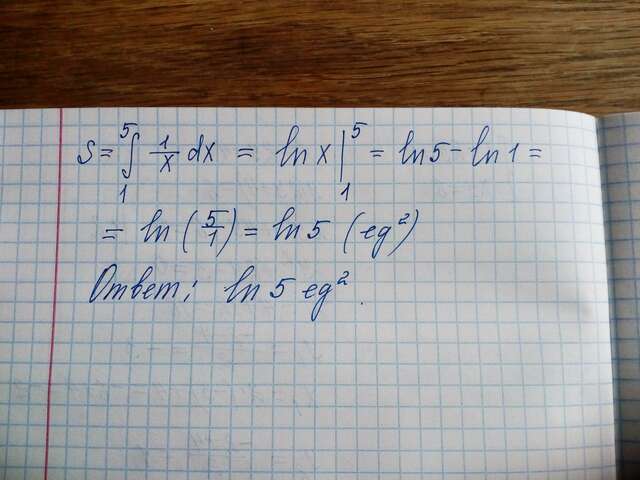 S = ∫₁⁵ 1/x dx = ln x |₁⁵ = ln 5 - ln 1 =
= ln (5/1) = ln 5 (ед²)
Ответ: ln 5 ед².